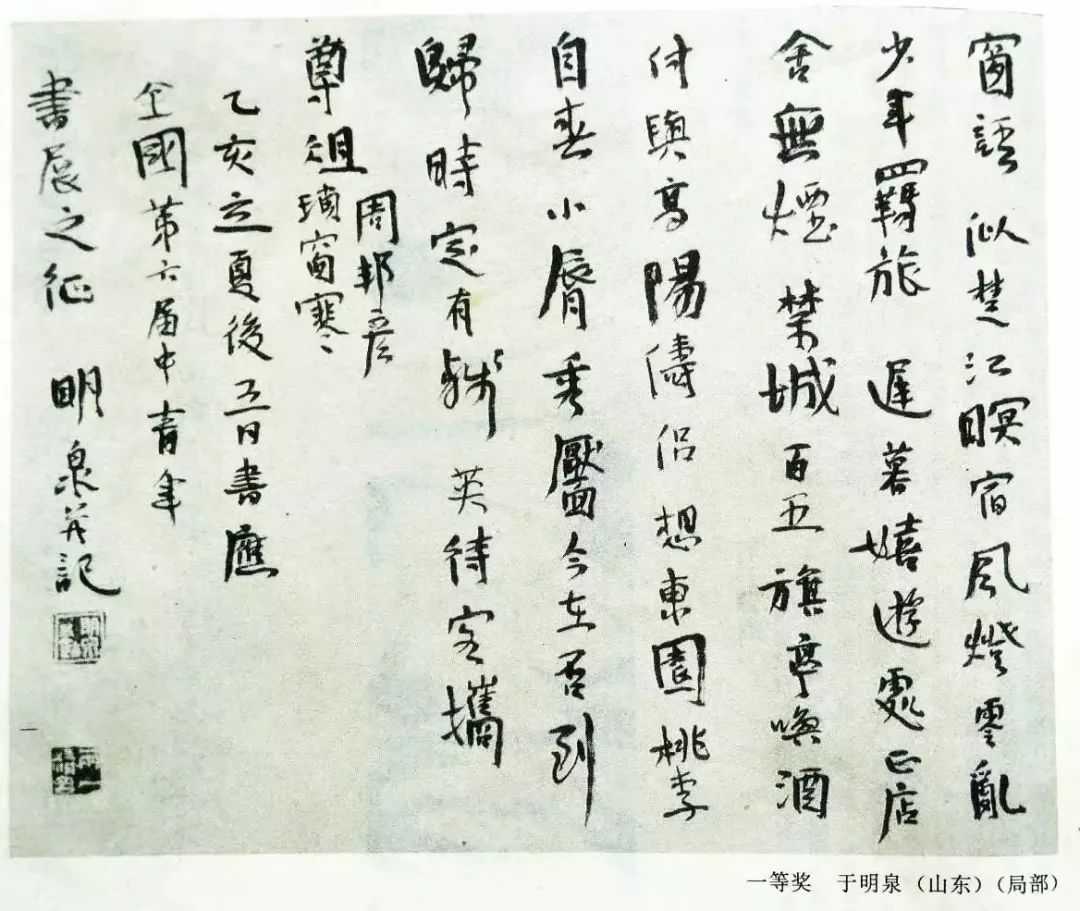 窗語似楚江暝宿風燈零亂
少年羈旅遲暮嬉遊處正店
舍無煙禁城百五旗亭喚酒
付與高陽儔侶想東園桃李
自春小脣秀靨今在否到
歸時定有殘英待客攜
尊俎
周邦彦
瑣窗寒
乙亥立夏後五日書應
全國第六届中青年
書展之征 明泉并記
一等奖 于明泉（山东）（局部）